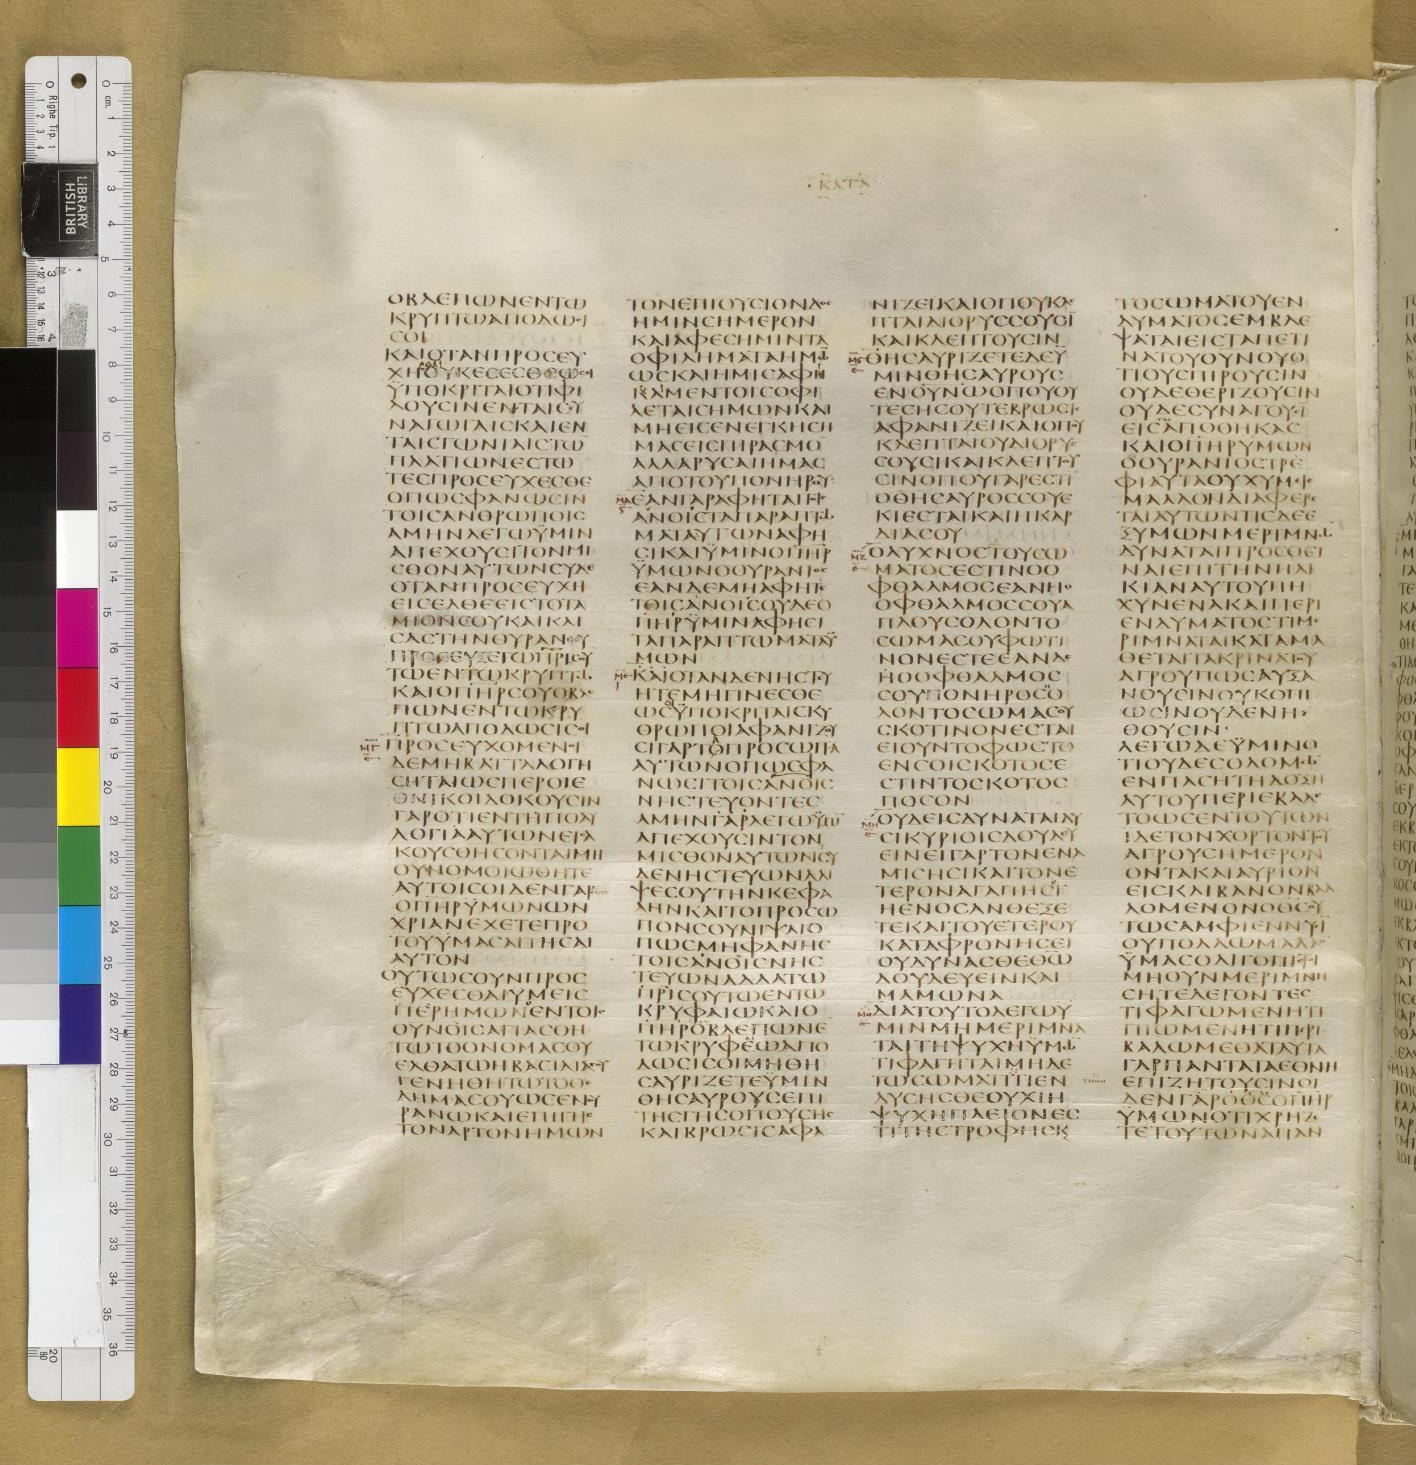 ΚΑΤΑ
ΟΒΛΕΠΩΝΕΝΤΩ
ΚΡΥΠΤΩΑΠΟΔΩϹΙ
ϹΟΙ
ΚΑΙΟΤΑΝΠΡΟϹΕΥ
ΫΠΟΚΡΙΤΑΙΟΤΙΦΙ
ΛΟΥϹΙΝΕΝΤΑΙϹΥ
ΝΑΓΩΓΑΙϹΚΑΙΕΝ
ΤΑΙϹΓΩΝΙΑΙϹΤΩ
ΠΛΑΤΙΩΝΕϹΤΩ
ΤΕϹΠΡΟϹΕΥΧΕϹΘΕ
ΟΠΩϹΦΑΝΩϹΙΝ
ΤΟΙϹΑΝΘΡΩΠΟΙϹ
ΑΜΗΝΛΕΓΩΫΜΙΝ
ΑΠΕΧΟΥϹΙΤΟΝΜΙ
ϹΘΟΝΑΥΤΩΝϹΥΔΕ
ΟΤΑΝΠΡΟϹΕΥΧΗ
ΕΙϹΕΛΘΕΕΙϹΤΟΤΑ
ΜΙΟΝϹΟΥΚΑΙΚΛΙ
ϹΑϹΤΗΝΘΥΡΑΝϹΟΥ
ΠΡΟϹΕΥΞΕΤΩΠΡΙϹΟΥ
ΤΩΕΝΤΩΚΡΥΠΤΩ
ΚΑΙΟΠΗΡϹΟΥΟΒΛΕ
ΠΩΝΕΝΤΩΚΡΥ
ΠΤΩΑΠΟΔΩϹΙϹΟΙ
ΠΡΟϹΕΥΧΟΜΕΝΟΙ
ΔΕΜΗΒΑΤΤΑΛΟΓΗ
ϹΗΤΑΙΩϹΠΕΡΟΙΕ
ΘΝΙΚΟΙΔΟΚΟΥϹΙΝ
ΓΑΡΟΤΙΕΝΤΗΠΟΛΥ
ΛΟΓΙΑΑΥΤΩΝΕΙϹΑ
ΚΟΥϹΘΗϹΟΝΤΑΙΜΗ
ΟΥΝΟΜΟΙΩΘΗΤΕ
ΑΥΤΟΙϹΟΙΔΕΝΓΑΡ
ΟΠΗΡΫΜΩΝΩΝ
ΧΡΙΑΝΕΧΕΤΕΠΡΟ
ΤΟΥΫΜΑϹΑΙΤΗϹΑΙ
ΑΥΤΟΝ
ΟΥΤΩϹΟΥΝΠΡΟϹ
ΕΥΧΕϹΘΑΙΫΜΕΙϹ
ΠΕΡΗΜΩΝΟΕΝΤΟΙϹ
ΟΥΝΟΙϹΑΓΙΑϹΘΗ
ΤΩΤΟΟΝΟΜΑϹΟΥ
ΕΛΘΑΤΩΗΒΑϹΙΛΙΑϹΟΥ
ΓΕΝΗΘΗΤΩΤΟΘΕ
ΛΗΜΑϹΟΥΩϹΕΝΟΥ
ΡΑΝΩΚΑΙΕΠΙΓΗϹ
ΤΟΝΑΡΤΟΝΗΜΩΝ
ΤΟΝΕΠΙΟΥϹΙΟΝΔΟϹ
ΗΜΙΝϹΗΜΕΡΟΝ
ΚΑΙΑΦΕϹΗΜΙΝΤΑ
ΟΦΙΛΗΜΑΤΑΗΜΩ
ΩϹΚΑΙΗΜΙϹΑΦΗ
ΚΑΜΕΝΤΟΙϹΟΦΙ
ΛΕΤΑΙϹΗΜΩΝΚΑΙ
ΜΗΕΙϹΕΝΕΓΚΗϹΗ
ΜΑϹΕΙϹΠΙΡΑϹΜΟ
ΑΛΛΑΡΥϹΑΙΗΜΑϹ
ΑΠΟΤΟΥΠΟΝΗΡΟΥ
ΕΑΝΓΑΡΑΦΗΤΑΙΤΟΙϹ
ΑΝΟΙϹΤΑΠΑΡΑΠΤΩ
ΜΑΤΑΥΤΩΝΑΦΗ
ϹΙΚΑΙΫΜΙΝΟΠΗΡ
ΫΜΩΝΟΟΥΡΑΝΙΟϹ
ΕΑΝΔΕΜΗΑΦΗΤΕ
ΤΟΙϹΑΝΟΙϹΟΥΔΕΟ
ΠΗΡΫΜΙΝΑΦΗϹΙ
ΤΑΠΑΡΑΠΤΩΜΑΤΑΫ
ΜΩΝ
ΚΑΙΟΤΑΝΔΕΝΗϹΤΕΥ
ΗΤΕΜΗΓΙΝΕϹΘΕ
ΩϹΫΠΟΚΡΙΤΑΙϹΚΥ
ΘΡΩΠΟΙΑΦΑΝΙΖΟΥ
ϹΙΓΑΡΤΟΠΡΟϹΩΠΑ
ΑΥΤΩΝΟΠΩϹΦΑ
ΝΩϹΙΤΟΙϹΑΝΟΙϹ
ΝΗϹΤΕΥΟΝΤΕϹ
ΑΜΗΝΓΑΡΛΕΓΩΫΜΙ
ΑΠΕΧΟΥϹΙΝΤΟΝ
ΜΙϹΘΟΝΑΥΤΩΝϹΥ
ΔΕΝΗϹΤΕΥΩΝΑΛΙ
ΨΕϹΟΥΤΗΝΚΕΦΑ
ΛΗΝΚΑΙΤΟΠΡΟϹΩ
ΠΟΝϹΟΥΝΙΨΑΙΟ
ΠΩϹΜΗΦΑΝΗϹ
ΤΟΙϹΑΝΟΙϹΝΗϹ
ΤΕΥΩΝΑΛΛΑΤΩ
ΠΡΙϹΟΥΤΩΕΝΤΩ
ΚΡΥΦΑΙΩΚΑΙΟ
ΠΗΡΟΒΛΕΠΩΝΕ
ΤΩΚΡΥΦΕΩΑΠΟ
ΔΩϹΙϹΟΙΜΗΘΗ
ϹΑΥΡΙΖΕΤΕΫΜΙΝ
ΘΗϹΑΥΡΟΥϹΕΠΙ
ΤΗϹΓΗϹΟΠΟΥϹΗϹ
ΚΑΙΒΡΩϹΙϹΑΦΑ
ΝΙΖΕΙΚΑΙΟΠΟΥΚΛΕ
ΠΤΑΙΔΙΟΡΥϹϹΟΥϹΙ
ΚΑΙΚΛΕΠΤΟΥϹΙΝ
ΘΗϹΑΥΡΙΖΕΤΕΔΕΫ
ΜΙΝΘΗϹΑΥΡΟΥϹ
ΕΝΟΥΝΩΟΠΟΥΟΥ
ΤΕϹΗϹΟΥΤΕΒΡΩϹΙϹ
ΑΦΑΝΙΖΕΙΚΑΙΟΠΟΥ
ΚΛΕΠΤΑΙΟΥΔΙΟΡΥϹ
ϹΟΥϹΙΚΑΙΚΛΕΠΤΟΥ
ϹΙΝΟΠΟΥΓΑΡΕϹΤΙ
ΟΘΗϹΑΥΡΟϹϹΟΥΕ
ΚΙΕϹΤΑΙΚΑΙΗΚΑΡ
ΔΙΑϹΟΥ
ΟΛΥΧΝΟϹΤΟΥϹΩ
ΜΑΤΟϹΕϹΤΙΝΟΟ
ΦΘΑΛΜΟϹΕΑΝΗΟ
ΟΦΘΑΛΜΟϹϹΟΥΑ
ΠΛΟΥϹΟΛΟΝΤΟ
ϹΩΜΑϹΟΥΦΩΤΙ
ΝΟΝΕϹΤΕΕΑΝΔΕ
ΗΟΟΦΘΑΛΜΟϹ
ϹΟΥΠΟΝΗΡΟϹΟ
ΛΟΝΤΟϹΩΜΑϹΟΥ
ϹΚΟΤΙΝΟΝΕϹΤΑΙ
ΕΙΟΥΝΤΟΦΩϹΤΟ
ΕΝϹΟΙϹΚΟΤΟϹΕ
ϹΤΙΝΤΟϹΚΟΤΟϹ
ΠΟϹΟΝ
ΟΥΔΕΙϹΔΥΝΑΤΑΙΔΥ
ϹΙΚΥΡΙΟΙϹΔΟΥΛΕΥ
ΕΙΝΕΙΓΑΡΤΟΝΕΝΑ
ΜΙϹΗϹΙΚΑΙΤΟΝΕ
ΤΕΡΟΝΑΓΑΠΗϹΙ
ΗΕΝΟϹΑΝΘΕΞΕ
ΤΕΚΑΙΤΟΥΕΤΕΡΟΥ
ΚΑΤΑΦΡΟΝΗϹΕΙ
ΟΥΔΥΝΑϹΘΕΘΩ
ΔΟΥΛΕΥΕΙΝΚΑΙ
ΜΑΜΩΝΑ
ΔΙΑΤΟΥΤΟΛΕΓΩΥ
ΜΙΝΜΗΜΕΡΙΜΝΑ
ΤΑΙΤΗΨΥΧΗΫΜΩ
ΤΙΦΑΓΗΤΑΙΜΗΔΕ
ΤΩϹΩΜΑΤΙΤΙΕΝ
ΔΥϹΗϹΘΕΟΥΧΙΗ
ΨΥΧΗΠΛΕΙΟΝΕϹ
ΤΙΤΗϹΤΡΟΦΗϹΚ
ΤΟϹΩΜΑΤΟΥΕΝ
ΔΥΜΑΤΟϹΕΜΒΛΕ
ΨΑΤΑΙΕΙϹΤΑΠΕΤΙ
ΝΑΤΟΥΟΥΝΟΥΟ
ΤΙΟΥϹΠΙΡΟΥϹΙΝ
ΟΥΔΕΘΕΡΙΖΟΥϹΙΝ
ΟΥΔΕϹΥΝΑΓΟΥϹΙ
ΕΙϹΑΠΟΘΗΚΑϹ
ΚΑΙΟΠΗΡΫΜΩΝ
ΟΟΥΡΑΝΙΟϹΤΡΕ
ΦΙΑΥΤΑΟΥΧΥΜΕΙϹ
ΜΑΛΛΟΝΔΙΑΦΕΡΕ
ΤΑΙΑΥΤΩΝΤΙϹΔΕΕ
ΞΥΜΩΝΜΕΡΙΜΝΩ
ΔΥΝΑΤΑΙΠΡΟϹΘΕΙ
ΝΑΙΕΠΙΤΗΝΗΛΙ
ΚΙΑΝΑΥΤΟΥΠΗ
ΧΥΝΕΝΑΚΑΙΠΕΡΙ
ΕΝΔΥΜΑΤΟϹΤΙΜΕ
ΡΙΜΝΑΤΑΙΚΑΤΑΜΑ
ΘΕΤΑΙΤΑΚΡΙΝΑΤΟΥ
ΑΓΡΟΥΠΩϹΑΥΞΑ
ΝΟΥϹΙΝΟΥΚΟΠΙ
ΩϹΙΝΟΥΔΕΝΗ
ΘΟΥϹΙΝ
ΛΕΓΩΔΕΫΜΙΝΟ
ΤΙΟΥΔΕϹΟΛΟΜΩ
ΕΝΠΑϹΗΤΗΔΟΞΗ
ΑΥΤΟΥΠΕΡΙΕΒΑΛΕ
ΤΟΩϹΕΝΤΟΥΤΩΝ
ΙΔΕΤΟΝΧΟΡΤΟΝΤΟΥ
ΑΓΡΟΥϹΗΜΕΡΟΝ
ΟΝΤΑΚΑΙΑΥΡΙΟΝ
ΕΙϹΚΛΙΒΑΝΟΝΒΑΛ
ΛΟΜΕΝΟΝΟΘϹΟΥ
ΤΩϹΑΜΦΙΕΝΝΥϹΙ
ΟΥΠΟΛΛΩΜΑΛΛΟ
ΫΜΑϹΟΛΙΓΟΠΙϹΤΟΙ
ΜΗΟΥΝΜΕΡΙΜΝΗ
ϹΗΤΕΛΕΓΟΝΤΕϹ
ΤΙΦΑΓΩΜΕΝΗΤΙ
ΠΙΩΜΕΝΗΤΙΠΕΡΙ
ΒΑΛΩΜΕΘΑΤΑΥΤΑ
ΓΑΡΠΑΝΤΑΤΑΕΘΝΗ
ΕΠΙΖΗΤΟΥϹΙΝΟΙ
ΔΕΝΓΑΡΟΘϹΟΠΗΡ
ΫΜΩΝΟΤΙΧΡΗΖΕ
ΤΕΤΟΥΤΩΝΑΠΑΝ